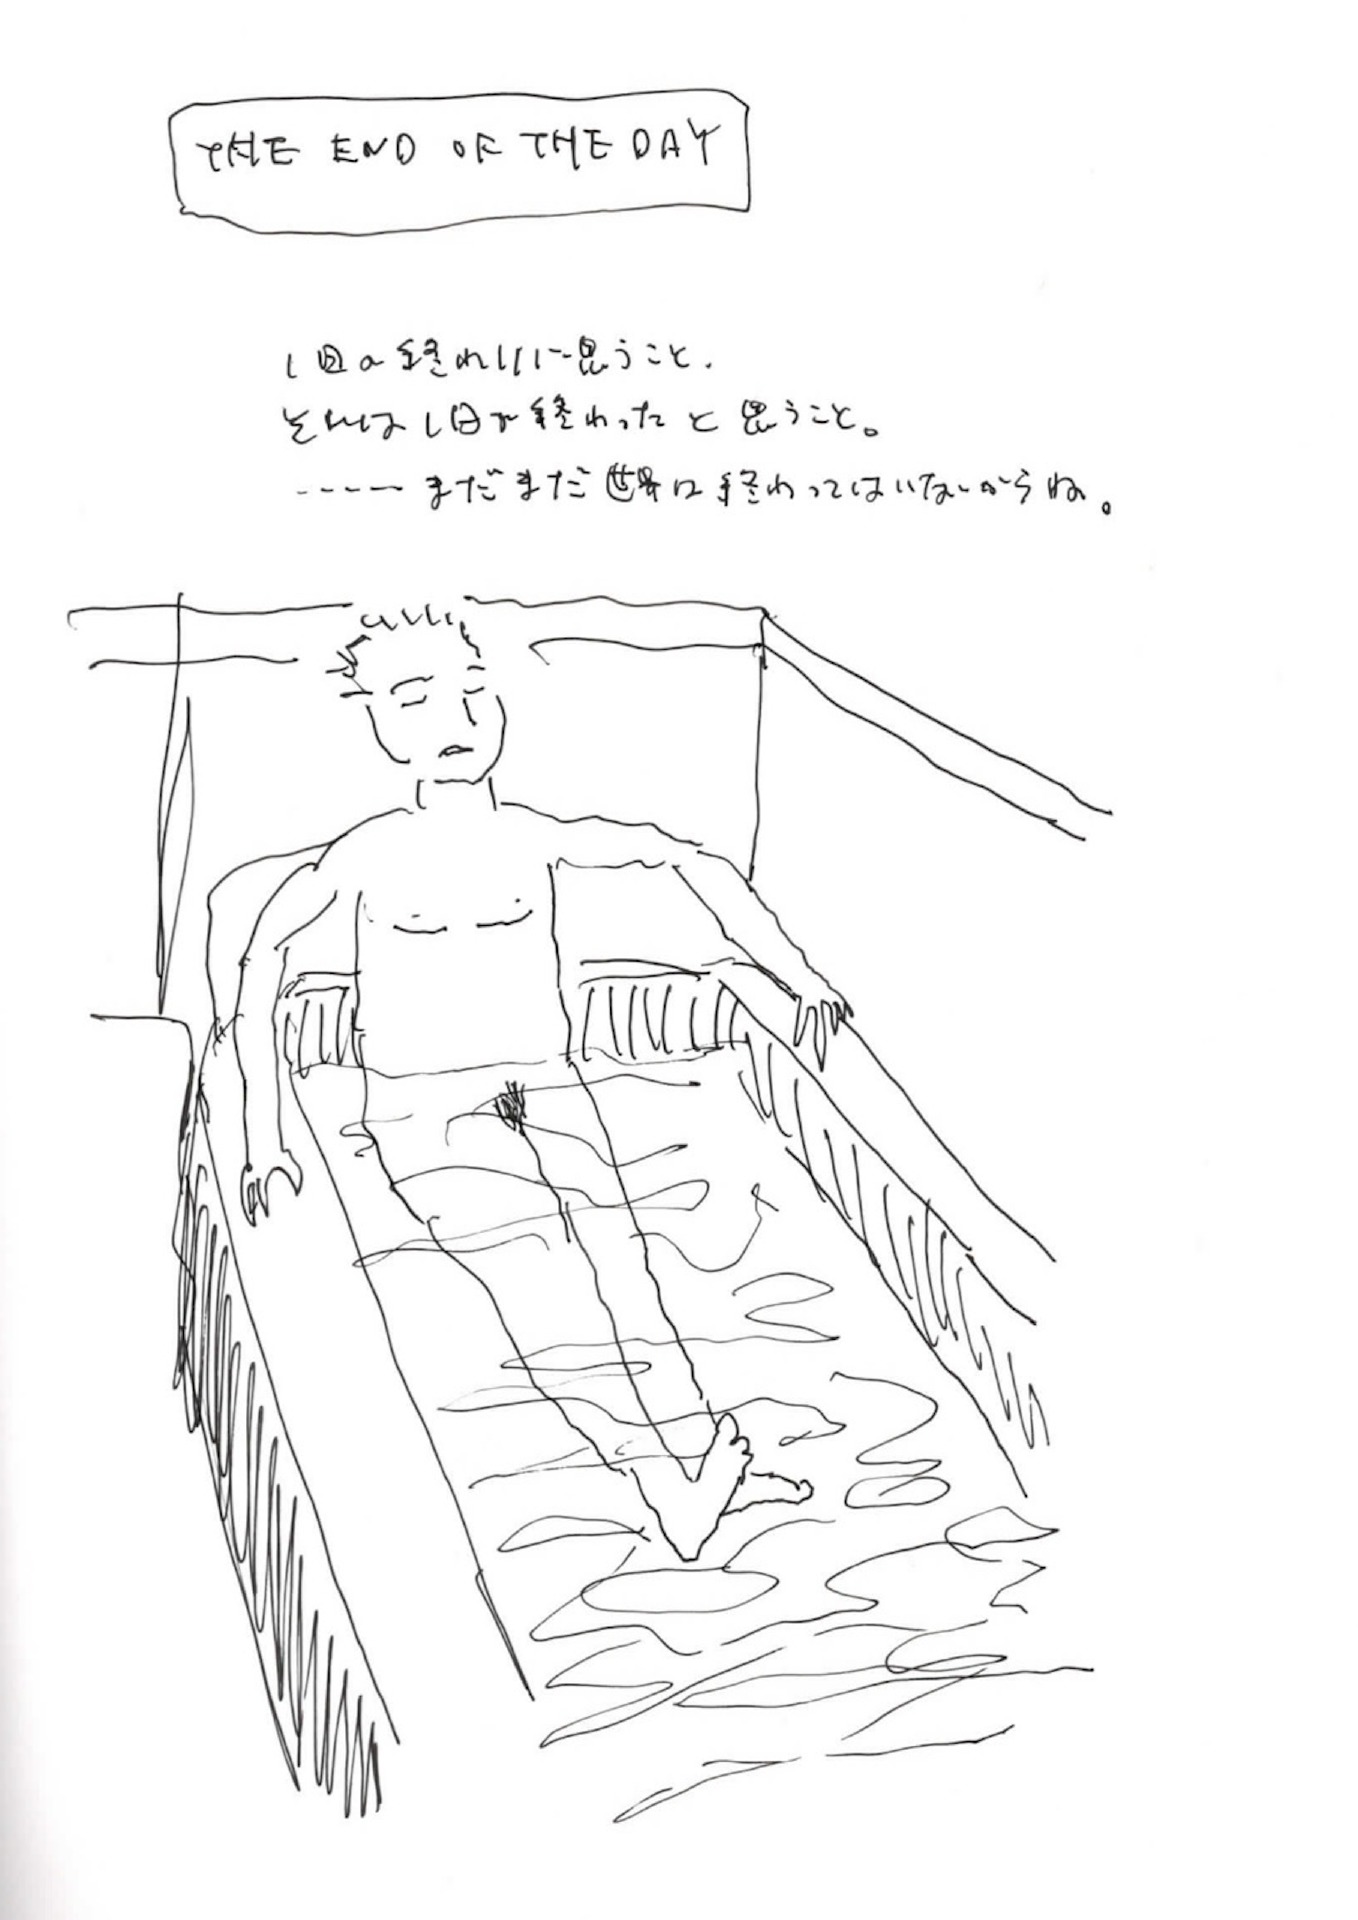 THE END OF THE DAY
1日の終わりに思うこと.
それは1日が終わったと思うこと。
-----まだまだ世界は終わってはいないからね。